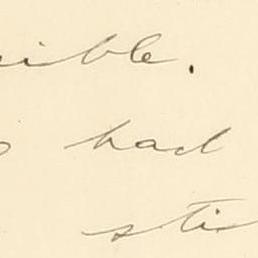 ible.
had
sti